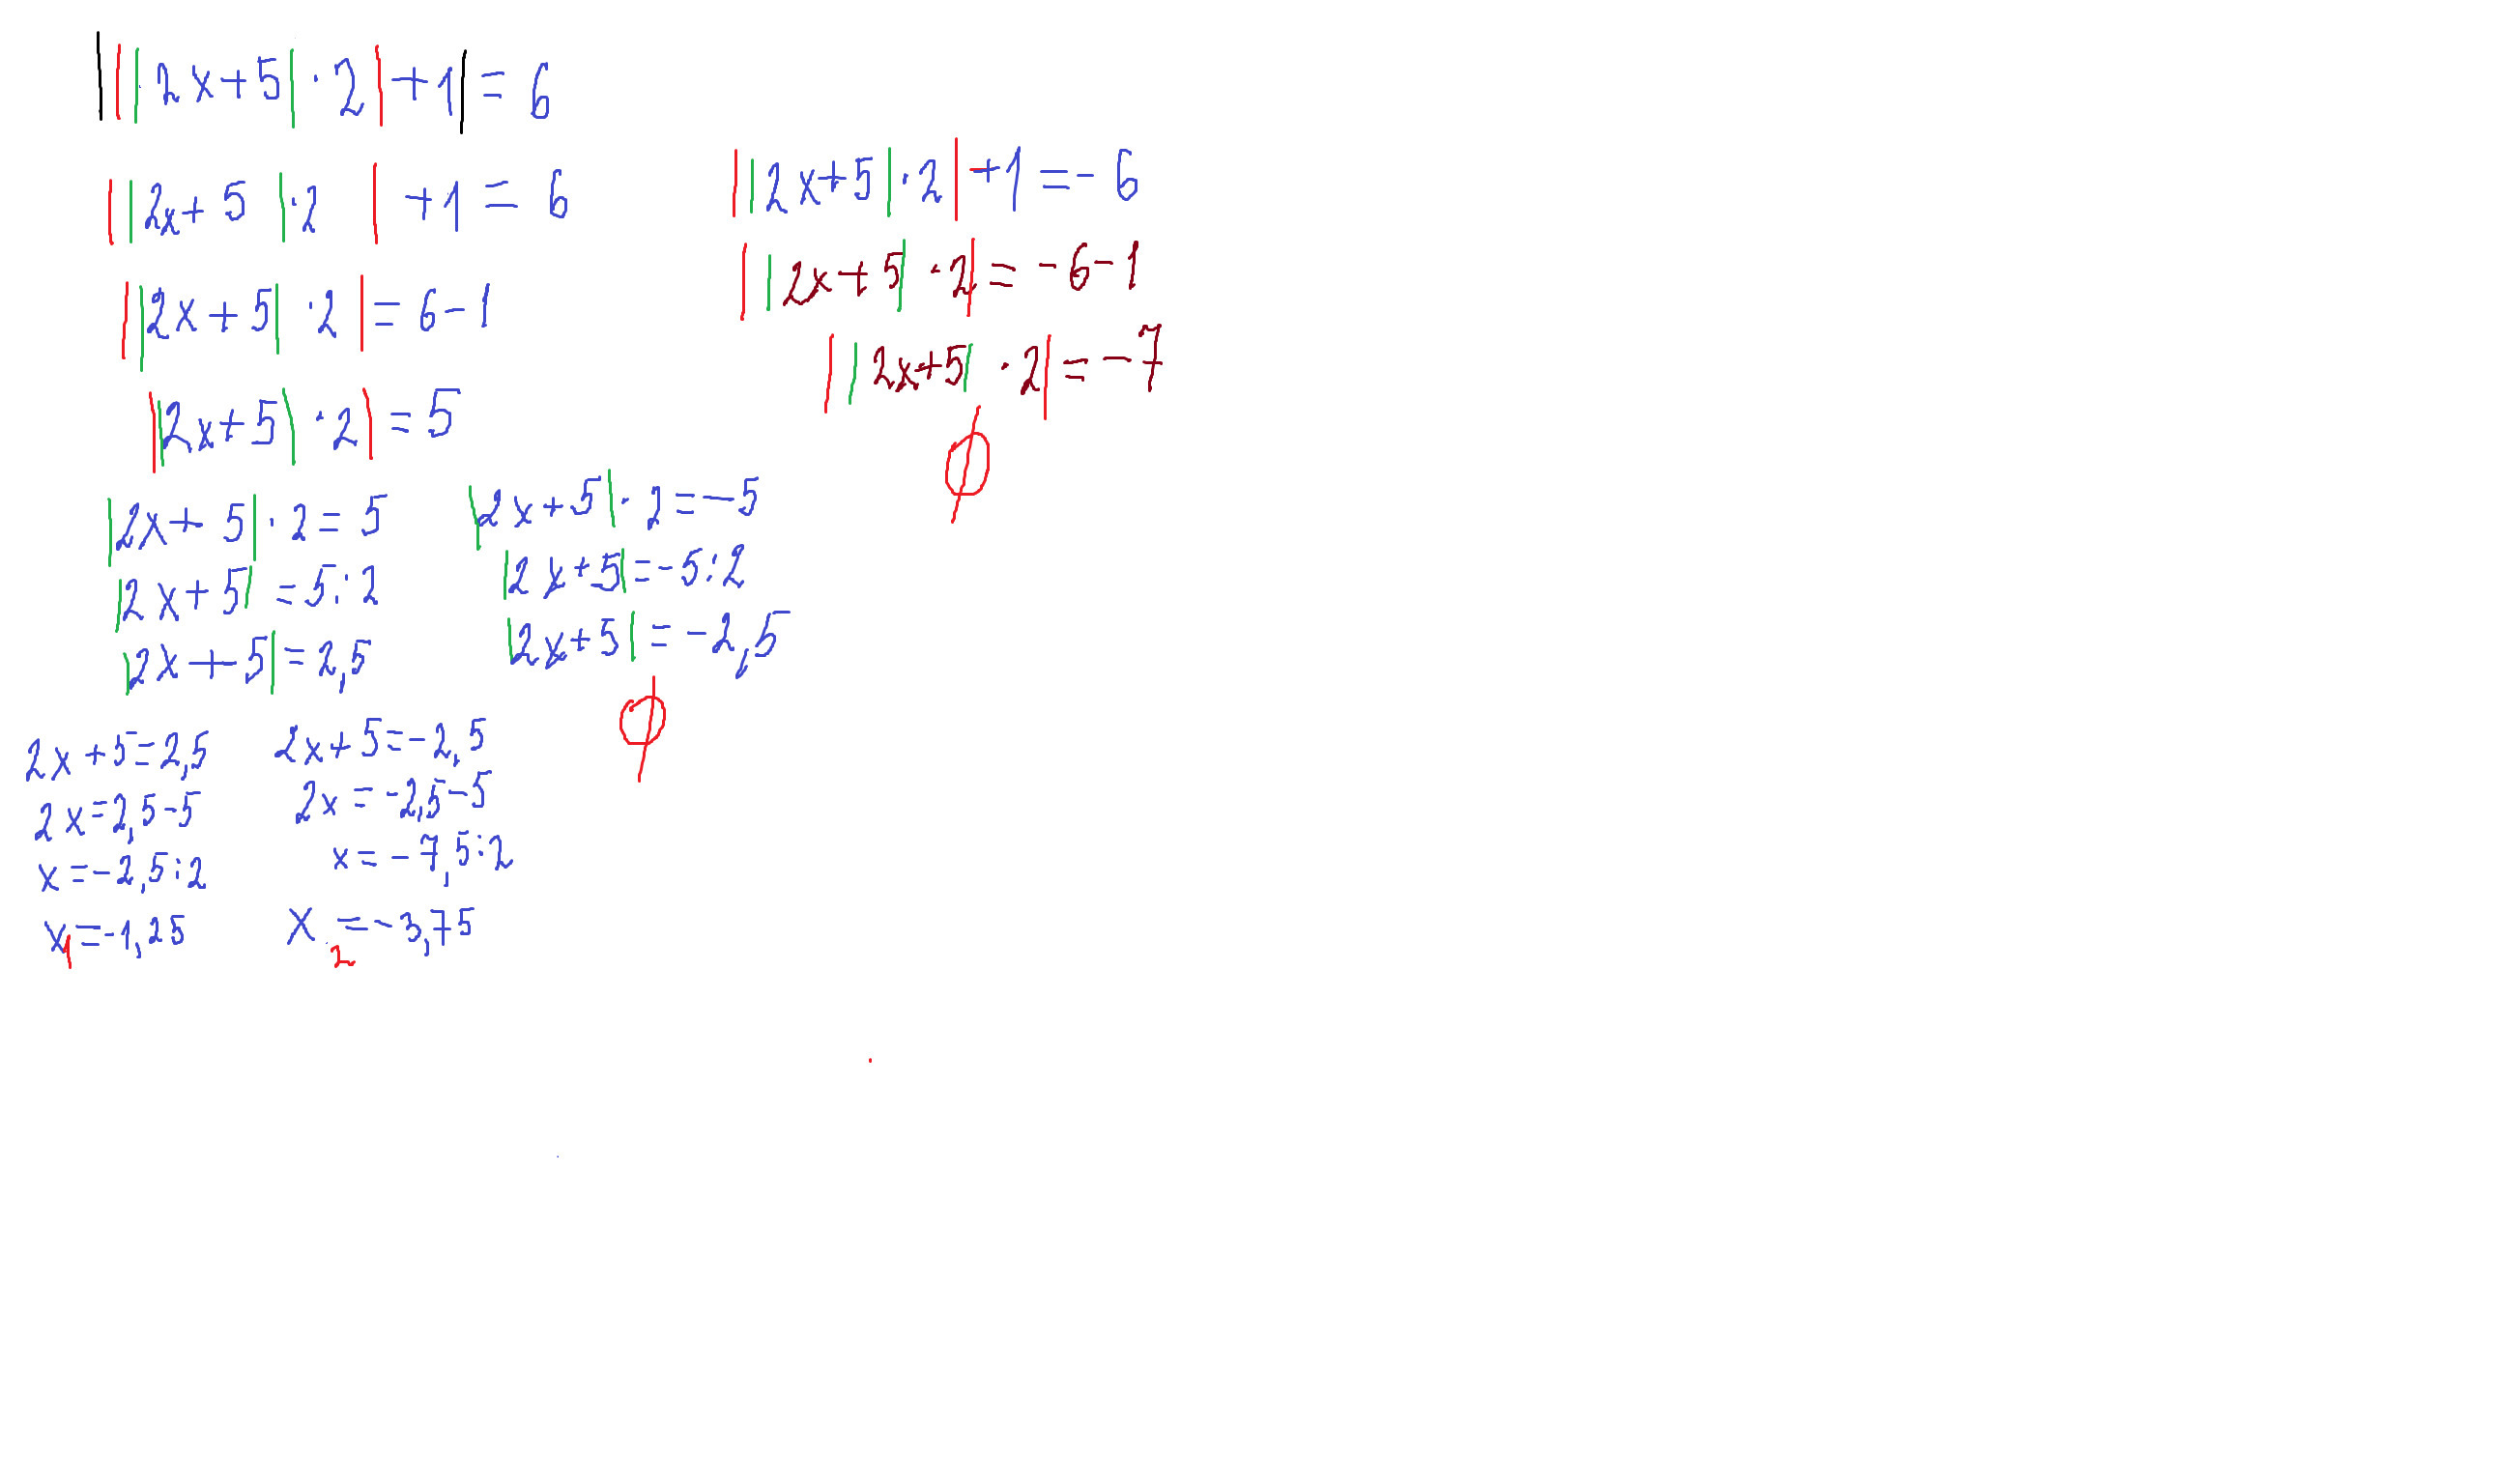 |||2x+5|·2|+1|=6
||2x+5|·2|+1=6
||2x+5|·2|=6-1
||2x+5|·2|=5
||2x+5|·2|+1=-6
||2x+5|·2|=-6-1
||2x+5|·2|=-7
∅
|2x+5|·2=5
|2x+5|=5:2
|2x+5|=2,5
|2x+5|·2=-5
|2x+5|=-5:2
|2x+5|=-2,5
∅
2x+5=2,5
2x=2,5-5
x=-2,5:2
x₁=-1,25
2x+5=-2,5
2x=-2,5-5
x=-7,5:2
x₂=-3,75